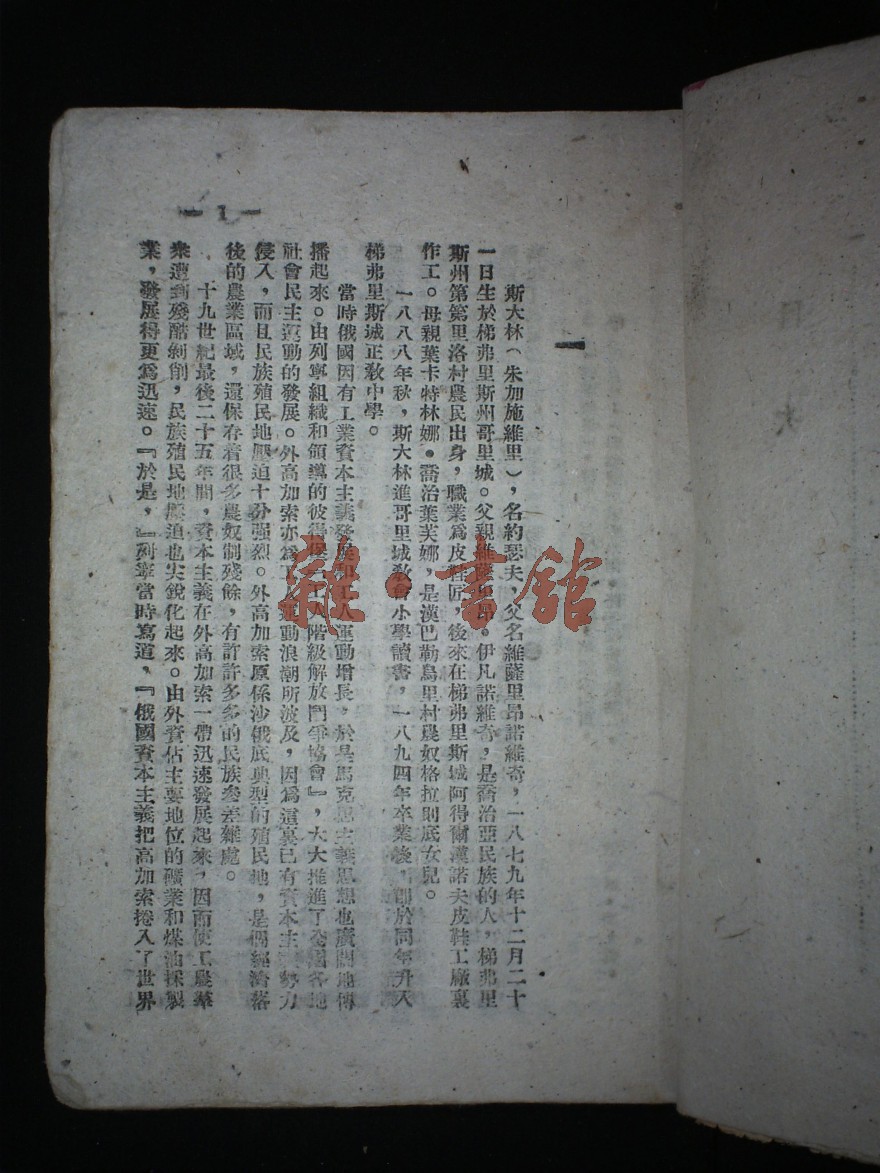 一
斯大林(朱加施維里),名約瑟夫,父名維薩里昂諾維奇,一八七九年十二月二十
一日生於梯弗里斯州哥里城。父親維薩里昂•伊凡諾維奇,是喬治亞民族的人,梯弗里
斯州第第里洛村農民出身,職業爲皮鞋匠,後來在梯弗里斯城阿得爾漢諾夫皮鞋工廠裏
作工。母親葉卡特林娜•喬治葉芙娜,是漢巴勒烏里村農奴格拉則底女兒。
一八八八年秋,斯大林進哥里城教會小學讀書,一八九四年卒業後,即於同年升入
梯弗里斯城正教中學。
當時俄國因有工業資本主義發展和工人運動增長,於是馬克思主義思想也廣闊地傳
播起來。由列寧組織和領導的彼得堡『工人階級解放鬥爭協會』,大大推進了全國各地
社會民主運動的發展。外高加索亦爲工人運動浪潮所波及,因爲這裏已有資本主 勢力
侵入,而且民族殖民地壓迫十分强烈。外高加索原係沙俄底典型的殖民地,是個經濟落
後的農業區域,還保存着很多農奴制殘餘,有許許多多的民族參差雜處。
十九世紀最後二十五年間,資本主義在外高加索一帶迅速發展起來,因而使工農羣
衆遭到殘酷剝削,民族殖民地壓迫也尖銳化起來。由外資佔主要地位的礦業和煤油採製
業,發展得更爲迅速。『於是,』列寧當時寫道,『俄國資本主義把高加索捲入了世界
— 1 —
雜•書館